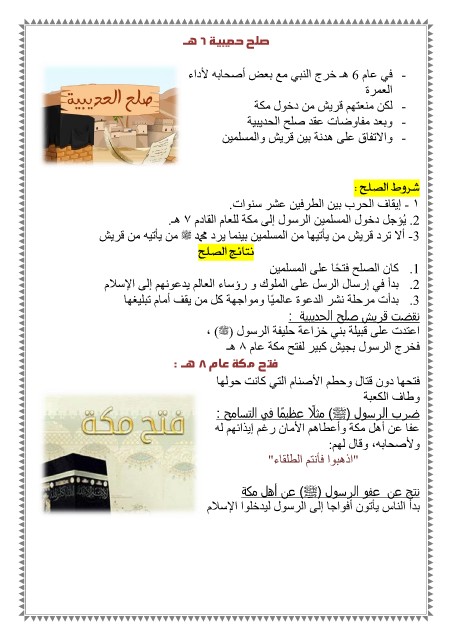 صلح حديبية ٦ هـ
- في عام 6 هـ خرج النبي مع بعض أصحابه لأداء
العمرة
- لكن منعتهم قريش من دخول مكة
- وبعد مفاوضات عقد صلح الحديبية
- والاتفاق على هدنة بين قريش والمسلمين
صلح الحديبية
شروط الصلح :
١ - إيقاف الحرب بين الطرفين عشر سنوات.
2. يُؤجل دخول المسلمين الرسول إلى مكة للعام القادم ٧ هـ.
3- ألا ترد قريش من يأتيها من المسلمين بينما يرد محمد ﷺ من يأتيه من قريش
نتائج الصلح
1. كان الصلح فتحًا على المسلمين
2. بدأ في إرسال الرسل على الملوك و رؤساء العالم يدعونهم إلى الإسلام
3. بدأت مرحلة نشر الدعوة عالميًا ومواجهة كل من يقف أمام تبليغها
نقضت قريش صلح الحديبية :
اعتدت على قبيلة بني خزاعة حليفة الرسول (ﷺ) ،
فخرج الرسول بجيش كبير لفتح مكة عام ٨ هـ
فتح مكة عام ٨ هـ :
فتحها دون قتال وحطم الأصنام التي كانت حولها
وطاف الكعبة
ضرب الرسول (ﷺ) مثلًا عظيمًا في التسامح :
عفا عن أهل مكة وأعطاهم الأمان رغم إيذائهم له
ولأصحابه، وقال لهم:
"اذهبوا فأنتم الطلقاء"
فتح مكة
نتج عن عفو الرسول (ﷺ) عن أهل مكة
بدأ الناس يأتون أفواجا إلى الرسول ليدخلوا الإسلام